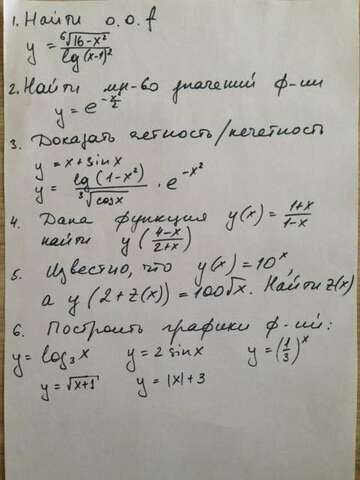 1. Найти о.о. f
y = ⁶√(16-x²) / lg(x-1)²
2. Найти мн-во значений ф-ии
y = e^(-x/2)
3. Доказать четность/нечетность
y = x + sin x
y = lg(1-x²) / ³√(cos x) · e^(-x²)
4. Дана функция y(x) = (1+x)/(1-x)
найти y((4-x)/(2+x))
5. Известно, что y(x) = 10^x,
а y(2+z(x)) = 100√x. Найти z(x)
6. Построить графики ф-ий:
y = log₃ x y = 2 sin x y = (1/3)^x
y = √(x+1) y = |x| + 3